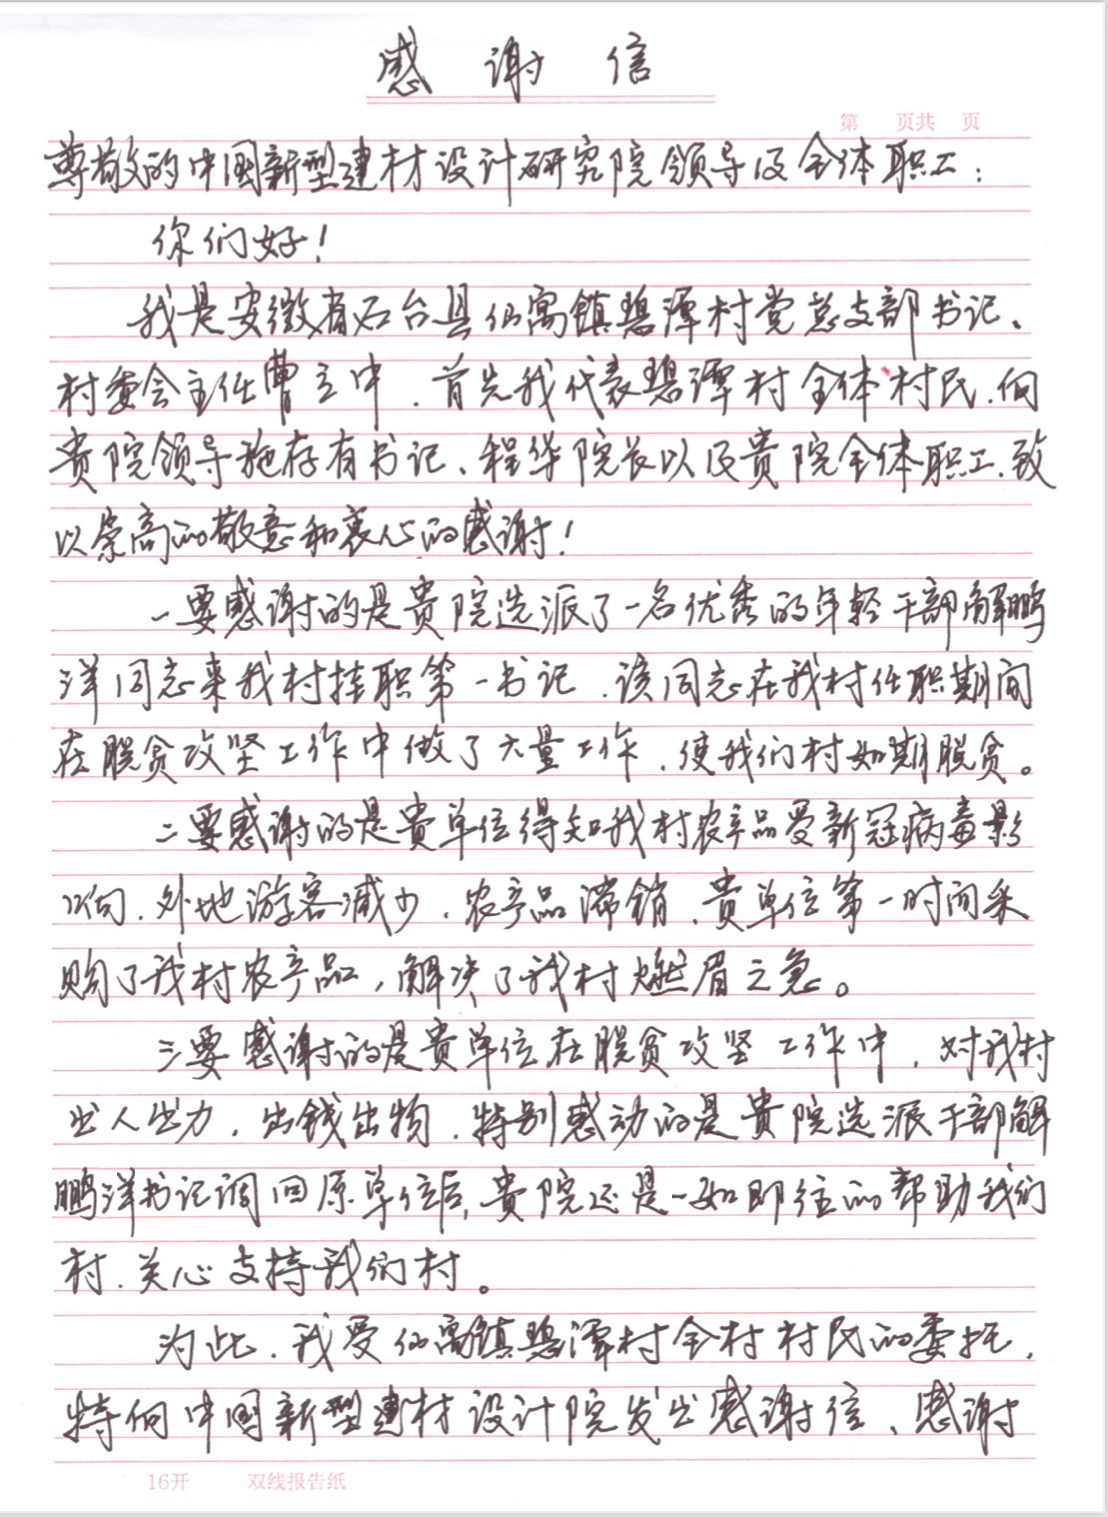 感谢信
第 页共 页
尊敬的中国新型建材设计研究院领导及全体职工:
你们好!
我是安徽省石台县仙寓镇碧潭村党总支部书记、
村委会主任曹立中.首先我代表碧潭村全体村民.向
贵院领导施存有书记、程华院长以及贵院全体职工.致
以崇高的敬意和衷心的感谢!
一要感谢的是贵院选派了一名优秀的年轻干部解鹏
洋同志来我村挂职第一书记.该同志在我村任职期间
在脱贫攻坚工作中做了大量工作.使我们村如期脱贫。
二要感谢的是贵单位得知我村农产品受新冠病毒影
响.外地游客减少.农产品滞销.贵单位第一时间采
购了我村农产品,解决了我村燃眉之急。
三要感谢的是贵单位在脱贫攻坚工作中.对我村
出人出力.出钱出物.特别感动的是贵院选派干部解
鹏洋书记调回原单位后,贵院还是一如即往的帮助我们
村.关心支持我们村。
为此.我受仙寓镇碧潭村全村村民的委托.
特向中国新型建材设计院发出感谢信、感谢
16开 双线报告纸